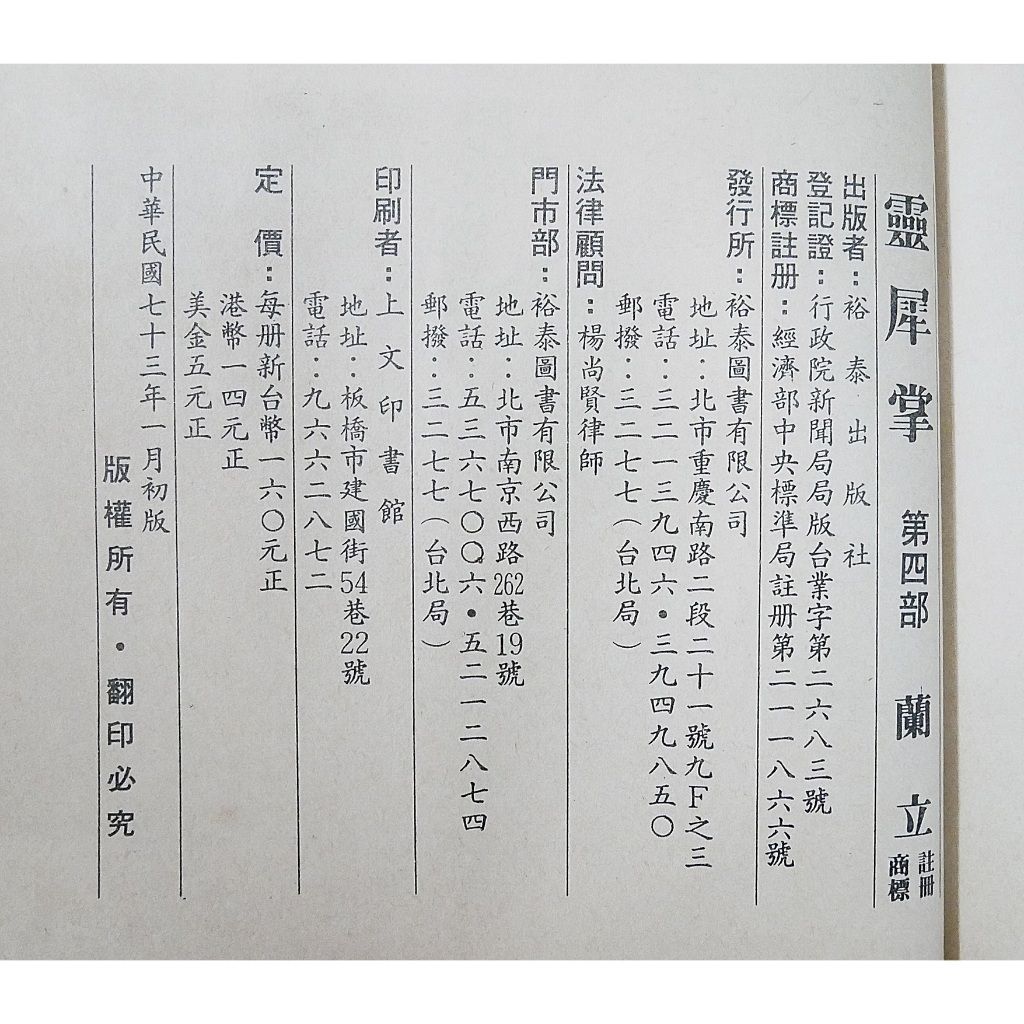 靈犀掌 第四部 蘭立 註冊商標
出版者：裕泰出版社
登記證：行政院新聞局局版台業字第二六八三號
商標註册：經濟部中央標準局註册第二一一八六六號
發行所：裕泰圖書有限公司
地址：北市重慶南路二段二十一號九F之三
電話：三二一三九四六・三九四九八五〇
郵撥：三二七七（台北局）
法律顧問：楊尚賢律師
門市部：裕泰圖書有限公司
地址：北市南京西路262巷19號
電話：五三六七〇〇六・五二一二八七四
郵撥：三二七七（台北局）
印刷者：上文印書館
地址：板橋市建國街54巷22號
電話：九六六二八七二
定價：每册新台幣一六〇元正
港幣一四元正
美金五元正
中華民國七十三年一月初版
版權所有・翻印必究